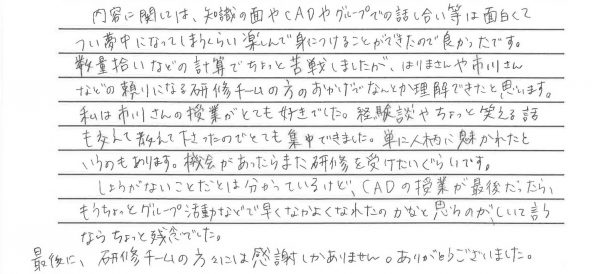 内容に関しては、知識の面やCADやグループでの話し合い等は面白くて
つい夢中になってしまうくらい楽しんで身につけることができたので良かったです。
数量拾いなどの計算でちょっと苦戦しましたが、はりまさんや市川さん
などの頼りになる研修チームの方のおかげでなんとか理解できたと思います。
私は市川さんの授業がとても好きでした。経験談やちょっと笑える話
も交えて教えて下さったのでとても集中できました。単に人柄に魅かれたと
いうのもあります。機会があったらまた研修を受けたいぐらいです。
しょうがないことだとは分かっているけど、CADの授業が最後だったら、
もうちょっとグループ活動などで早くなかよくなれたのかなと思うのが、しいて言う
ならちょっと残念でした。
最後に、研修チームの方々には感謝しかありません。ありがとうございました。